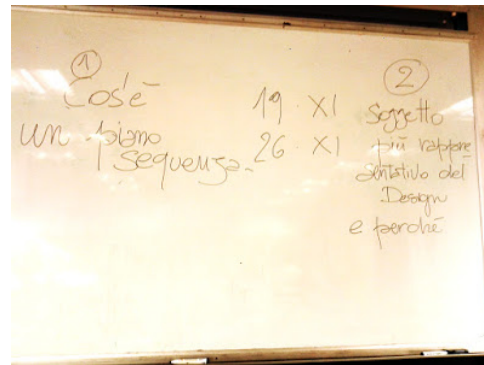 1
Cos'è
un piano
sequenza.
19. XI
26. XI
2
Soggetto
più rappre
sentativo del
Design
e perché